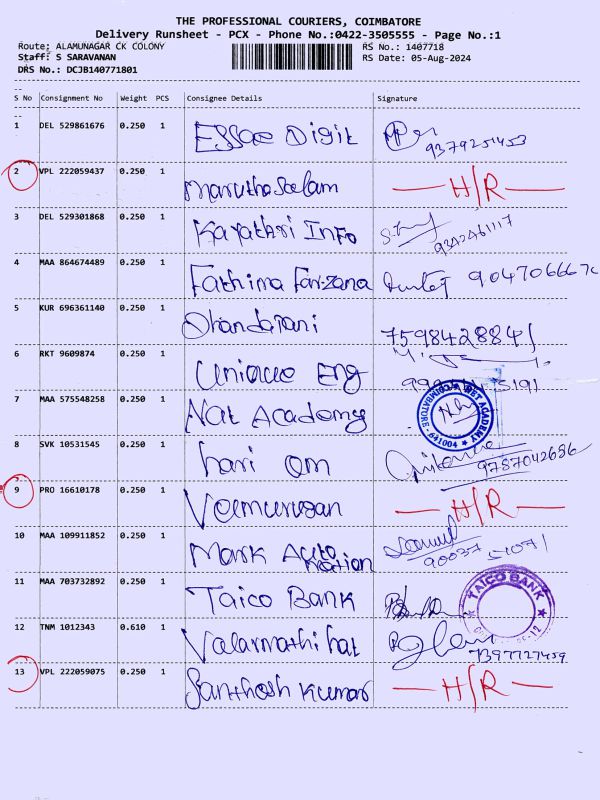 THE PROFESSIONAL COURIERS, COIMBATORE
Delivery Runsheet - PCX - Phone No.:0422-3505555 - Page No.:1
Route; ALAMUNAGAR CK COLONY RS No.: 1407718
Staff: S SARAVANAN RS Date: 05-Aug-2024
DRS No.: DCJB140771801
S No Consignment No Weight PCS Consignee Details Signature
1 DEL 529861676 0.250 1 Essae Digit 9379251453
2 VPL 222059437 0.250 1 Marutha Seelam H/R
3 DEL 529301868 0.250 1 Kayathri Info 9342461117
4 MAA 864674489 0.250 1 Fathima Farzana
5 KUR 696361140 0.250 1 Dhandapani 7598428841
6 RKT 9609874 0.250 1 Unique Eng
7 MAA 575548258 0.250 1 Nat Academy ACADEMY COIMBATORE - 641004
8 SVK 10531545 0.250 1 hari om 9787042686
9 PRO 16610178 0.250 1 Velmurugan H/R
10 MAA 109911852 0.250 1 Mark Automation
11 MAA 703732892 0.250 1 Taico Bank TAICO BANK
12 TNM 1012343 0.610 1 Valarmathi hat 7397727459
13 VPL 222059075 0.250 1 Santhosh Kumar H/R